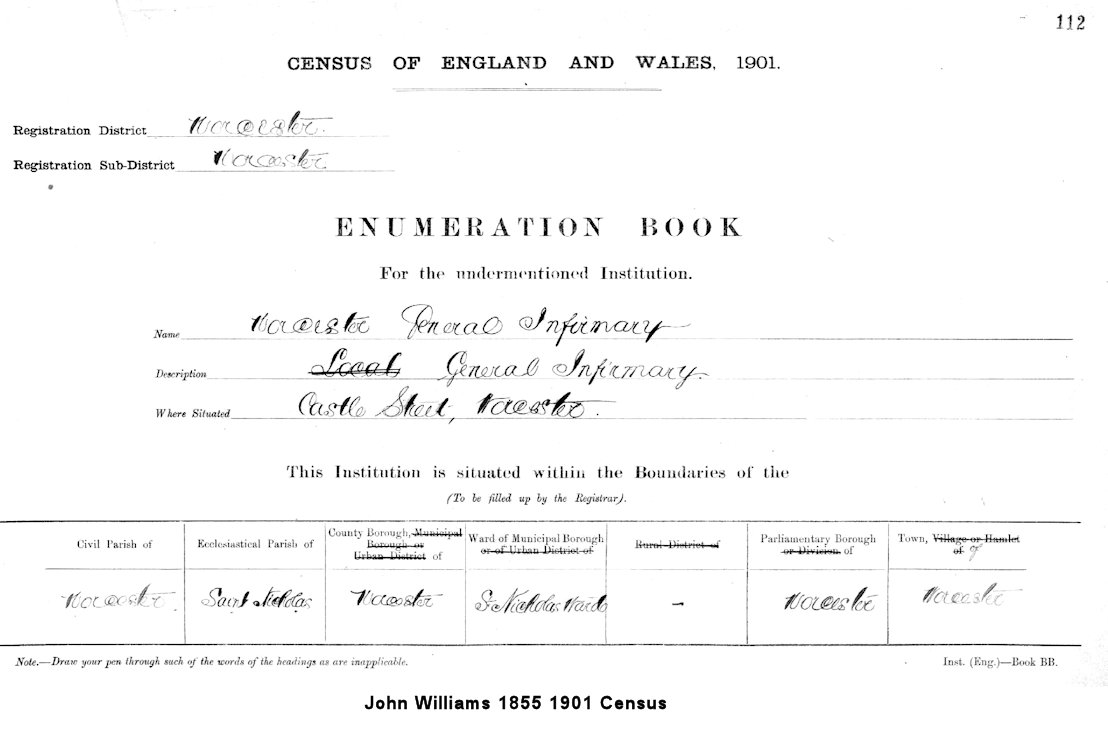 112
CENSUS OF ENGLAND AND WALES, 1901.
Registration District Worcester.
Registration Sub-District Worcester
ENUMERATION BOOK
For the undermentioned Institution.
Name Worcester General Infirmary
Description Local General Infirmary.
Where Situated Castle Street, Worcester.
This Institution is situated within the Boundaries of the
(To be filled up by the Registrar).
Civil Parish of
Ecclesiastical Parish of
County Borough, Municipal
Borough or
Urban District of
Ward of Municipal Borough
or of Urban District of
Rural District of
Parliamentary Borough
or Division of
Town, Village or Hamlet
of of
Worcester
Saint Nicholas
Worcester
St Nicholas Ward
–
Worcester
Worcester
Note.—Draw your pen through such of the words of the headings as are inapplicable.
Inst. (Eng.)—Book BB.
John Williams 1855 1901 Census